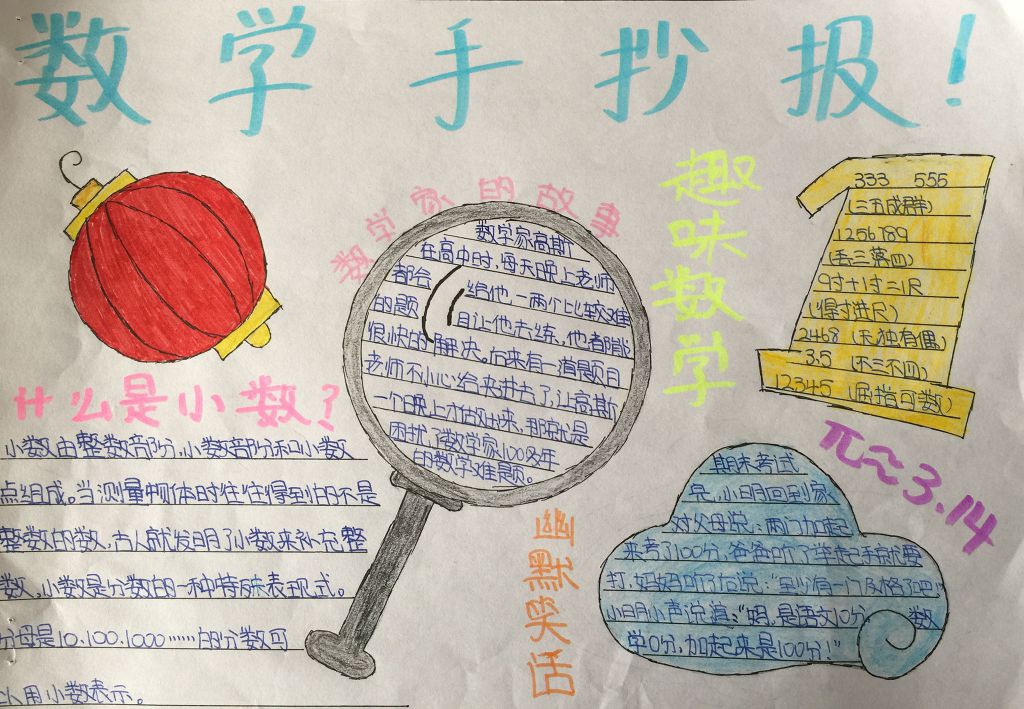 数学手抄报！
数学家的故事
数学家高斯
在高中时，每天晚上老师
都会给他一两个比较难
的题目让他去练，他都能
很快的解决。后来有一道题目
老师不小心给夹进去了，让高斯
一个晚上才做出来，那就是
困扰了数学家100多年
的数学难题。
趣味数学
333 555
(三五成群)
1256789
(丢三落四)
9寸+1寸=1尺
(得寸进尺)
2468 (无独有偶)
3.5 (不三不四)
12345 (屈指可数)
什么是小数？
小数由整数部分，小数部分和小数
点组成。当测量物体时往往得到的不是
整数的数，古人就发明了小数来补充整
数，小数是分数的一种特殊表现式。
分母是10.100.1000……的分数可
以用小数表示。
π≈3.14
幽默笑话
期末考试
完，小明回到家
对父母说：两门加起
来考了100分，爸爸听了举起手就要
打，妈妈听了后说：“至少有一门及格了吧”
小明小声说道：“妈，是语文10分 数
学0分，加起来是100分！”